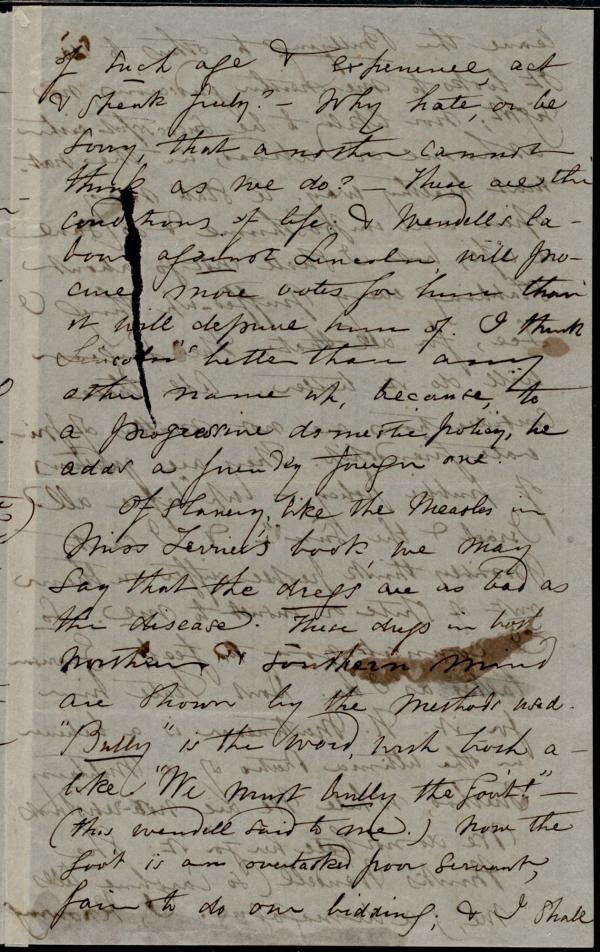 of such age & experience, act
& speak freely? – Why hate, or be
sorry, that another cannot
think as we do? – These are the
conditions of life; & Wendell's la-
bour against Lincoln, will pro-
cure more votes for him than
it will deprive him of. I think
Lincoln's better than any
other name wh, because, to
a progressive domestic policy, he
adds a friendly foreign one.
Of slavery, like the Measles in
Miss Ferrier's book, we may
say that the dregs are as bad as
the disease. These dregs in both
Northern & Southern mind
are shown by the methods used.
"Bully" is the word, with both a-
like. "We must bully the Gov't" –
(this Wendell said to me.) Now the
Gov't is an overtasked poor servant,
fain to do our bidding; & I shall